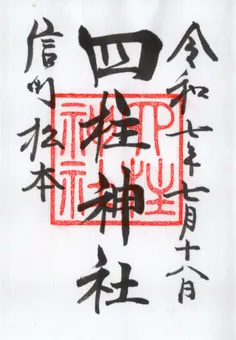 令和七年七月十八日
四柱神社
信州松本
四柱神社